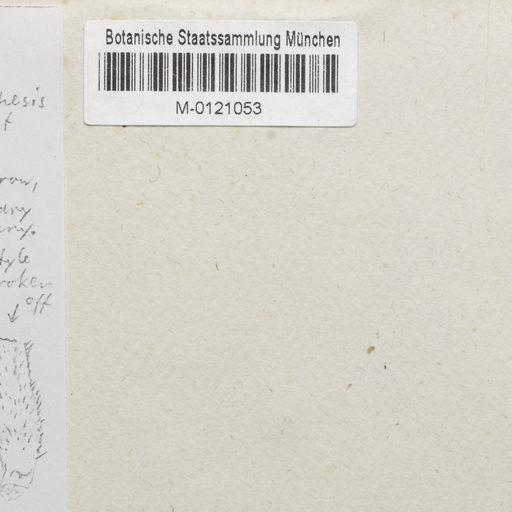 Botanische Staatssammlung München
M-0121053
hesis
f
row,
ary
ary.
style
roken
off